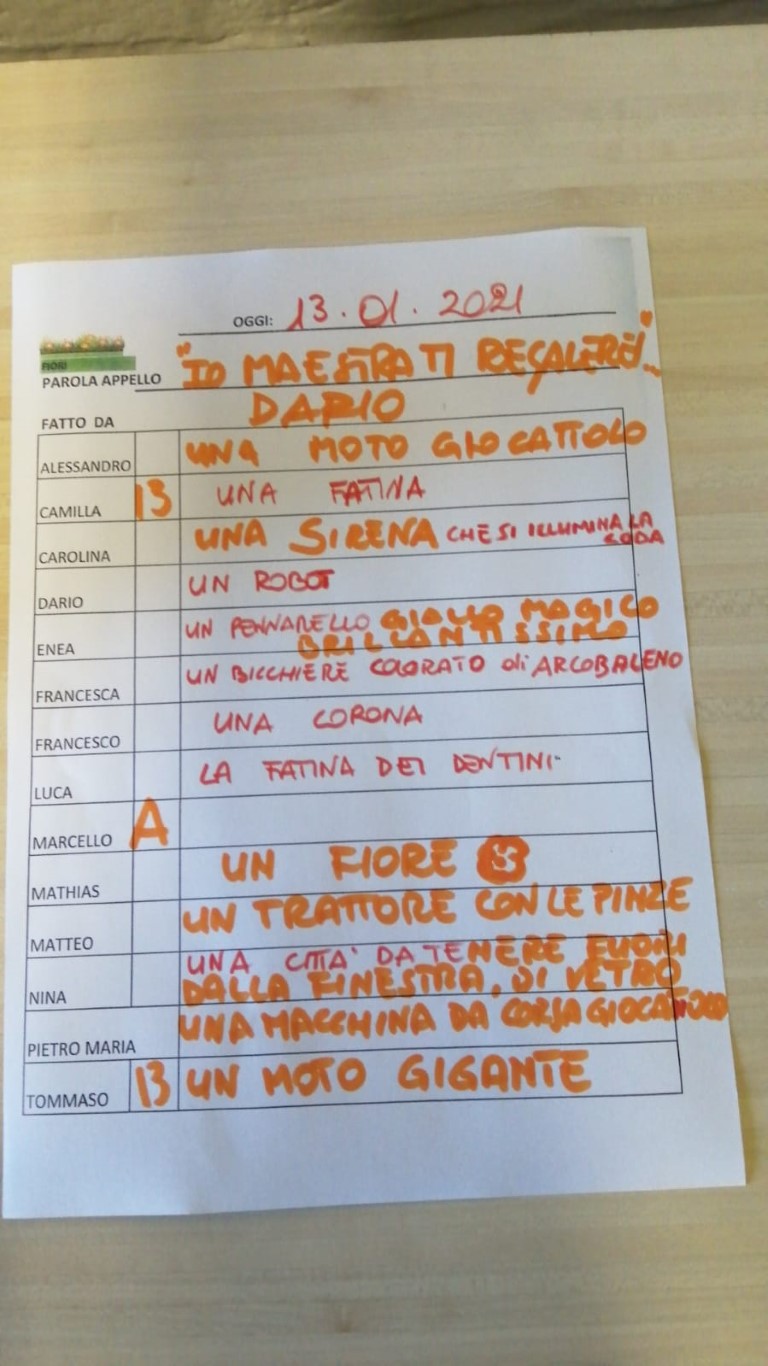 OGGI: 13.01.2021
FIORI
PAROLA APPELLO "IO MAESTRA TI REGALEREI..."
FATTO DA DARIO
ALESSANDRO UNA MOTO GIOCATTOLO
CAMILLA 13 UNA FATINA
CAROLINA UNA SIRENA CHE SI ILLUMINA LA CODA
DARIO UN ROBOT
ENEA UN PENNARELLO GIALLO MAGICO
BRILLANTISSIMO
FRANCESCA UN BICCHIERE COLORATO di ARCOBALENO
FRANCESCO UNA CORONA
LUCA LA FATINA DEI DENTINI
MARCELLO A
MATHIAS UN FIORE
MATTEO UN TRATTORE CON LE PINZE
NINA UNA CITTA' DA TENERE FUORI
DALLA FINESTRA, DI VETRO
PIETRO MARIA UNA MACCHINA DA CORSA GIOCATTOLO
TOMMASO 13 UN MOTO GIGANTE